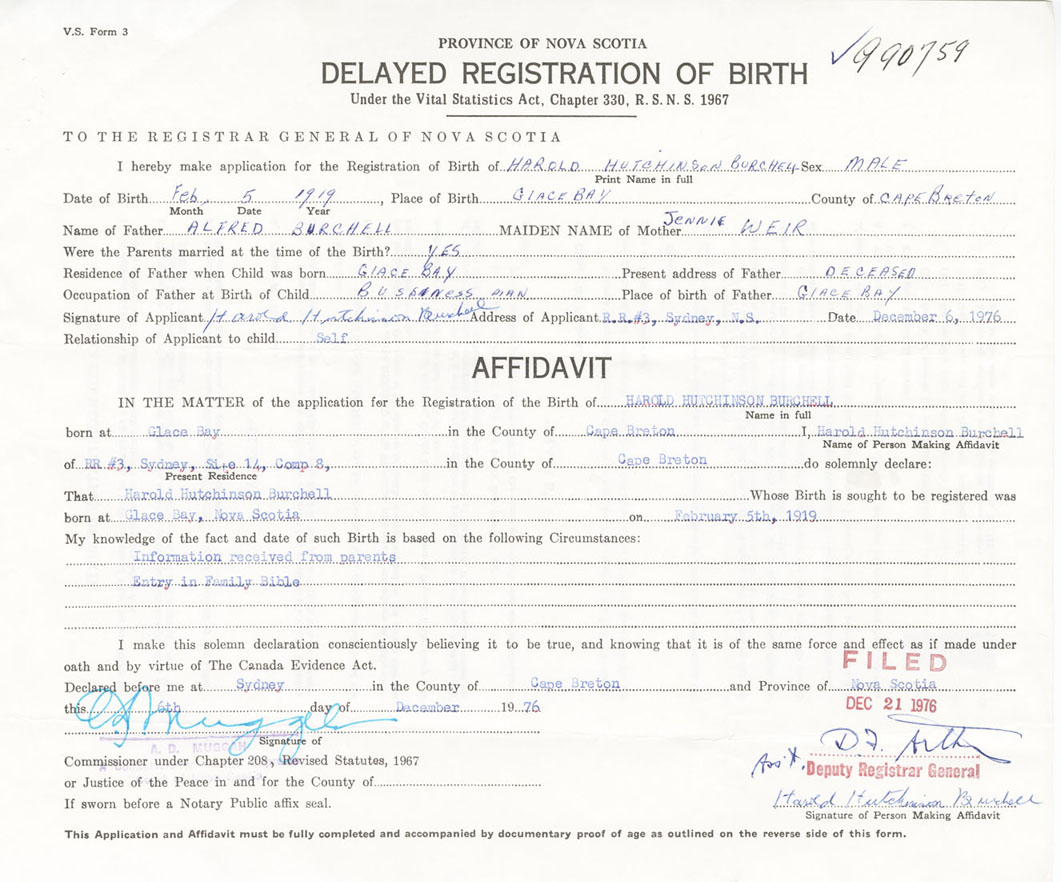 V.S. Form 3
PROVINCE OF NOVA SCOTIA
✓990759
DELAYED REGISTRATION OF BIRTH
Under the Vital Statistics Act, Chapter 330, R.S.N.S. 1967
TO THE REGISTRAR GENERAL OF NOVA SCOTIA
I hereby make application for the Registration of Birth of HAROLD HUTCHINSON BURCHELL Sex MALE
Print Name in full
Date of Birth Feb. 5 1919, Place of Birth GLACE BAY County of CAPE BRETON
Month Date Year
Name of Father ALFRED BURCHELL MAIDEN NAME of Mother JENNIE WEIR
Were the Parents married at the time of the Birth? YES
Residence of Father when Child was born GLACE BAY Present address of Father DECEASED
Occupation of Father at Birth of Child BUSINESS MAN Place of birth of Father GLACE BAY
Signature of Applicant Harold Hutchinson Burchell Address of Applicant R.R.#3, Sydney, N.S. Date December 6, 1976
Relationship of Applicant to child Self
AFFIDAVIT
IN THE MATTER of the application for the Registration of the Birth of HAROLD HUTCHINSON BURCHELL
Name in full
born at Glace Bay in the County of Cape Breton I, Harold Hutchinson Burchell
Name of Person Making Affidavit
of RR #3, Sydney, Site 14, Comp 8, in the County of Cape Breton do solemnly declare:
Present Residence
That Harold Hutchinson Burchell Whose Birth is sought to be registered was
born at Glace Bay, Nova Scotia on February 5th, 1919
My knowledge of the fact and date of such Birth is based on the following Circumstances:
Information received from parents
Entry in Family Bible
I make this solemn declaration conscientiously believing it to be true, and knowing that it is of the same force and effect as if made under
oath and by virtue of The Canada Evidence Act.
FILED
Declared before me at Sydney in the County of Cape Breton and Province of Nova Scotia
this 6th day of December 1976
DEC 21 1976
A. D. MUGGAH
Signature of
Commissioner under Chapter 208, Revised Statutes, 1967
Ass't. Deputy Registrar General
or Justice of the Peace in and for the County of
Harold Hutchinson Burchell
If sworn before a Notary Public affix seal.
Signature of Person Making Affidavit
This Application and Affidavit must be fully completed and accompanied by documentary proof of age as outlined on the reverse side of this form.